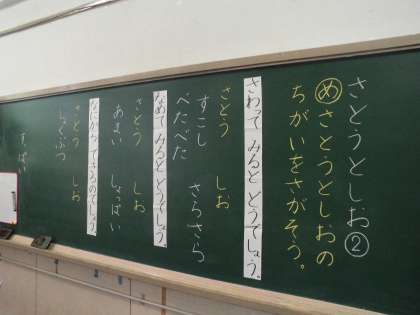 さとうとしお②
めさとうとしおの
ちがいをさがそう。
さわって みると どうでしょう。
さとう しお
すこし さらさら
べたべた
なめて みると どうでしょう
さとう しお
あまい しょっぱい
なにから できるのでしょう
さとう しお
しょくぶつ